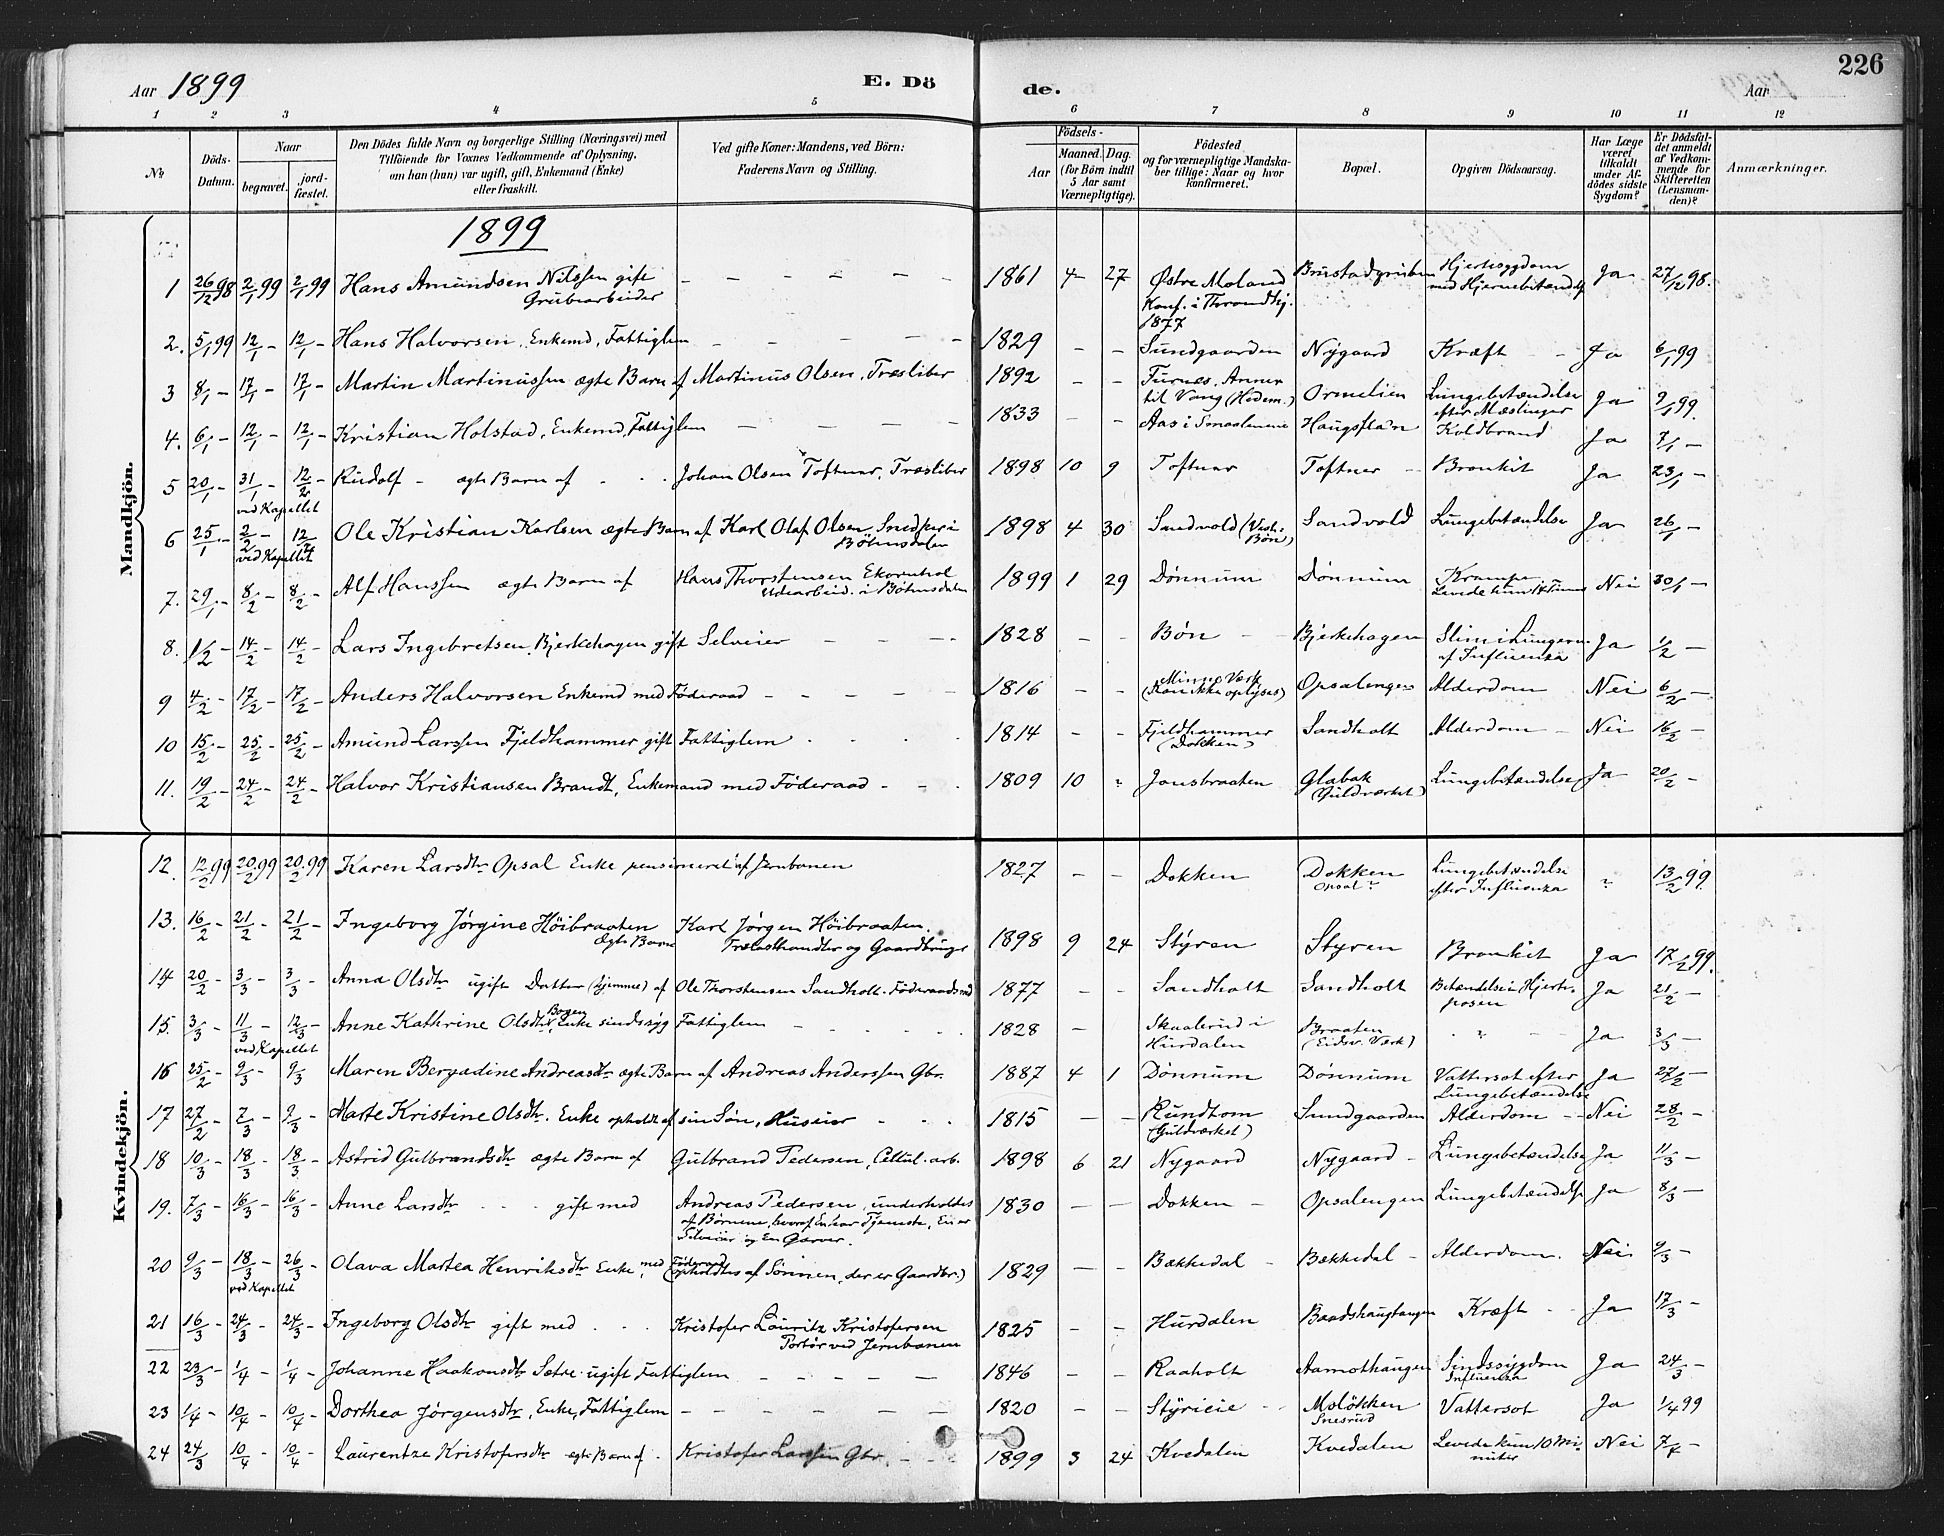 226
Aar 1899 E. Dö de. Aar
1 2 3 4 5 6 7 8 9 10 11 12
No
Döds-Datum.
Naar
begravet.
jord-fæstet.
Den Dödes fulde Navn og borgerlige Stilling (Næringsvei) med
Tilföiende for Voxnes Vedkommende af Oplysning,
om han (hun) var ugift, gift, Enkemand (Enke)
eller fraskilt.
Ved gifte Koner: Mandens, ved Börn:
Faderens Navn og Stilling.
Födsels-
Aar
Maaned. Dag.
(for Börn indtil
5 Aar samt
Værnepligtige).
Födested
og for værnepligtige Mandska-
ber tillige: Naar og hvor
konfirmeret.
Bopæl.
Opgiven Dödsaarsag.
Har Læge
været
tilkaldt
under Af-
dödes sidste
Sygdom?
Er Dödsfal-
det anmeldt
af Vedkom-
mende for
Skifteretten
(Lensman-
den)?
Anmærkninger.
Mandkjön.
1899
1 26/12 98 2/1 99 2/1 99 Hans Amundsen Nilssen gift Grubearbeider – – – – – 1861 4 27 Østre Moland Konf. i Throndhj. 1877 Brustadgruben Hjertesygdom med Hjernebetændelse Ja 27/12 98.
2. 5/1 99 12/1 – 12/1 – Hans Halvorsen, Enkemd, Fattiglem – – – – 1829 – – Sundgaarden Nygaard Kræft – Ja 6/1 99
3 8/1 – 17/1 – 17/1 – Martin Martinussen ægte Barn af Martinus Olsen, Træsliber 1892 – – Furnes, Annex til Vang (Hedem.) Ormelien Lungebetændelse efter Mæslinger Ja 9/1 99.
4. 6/1 – 12/1 – 12/1 – Kristian Holstad, Enkemd, Fattiglem – – – – 1833 – – Aas i Smaalenene Haugsfla'n Koldbrand Ja 7/1 –
5 20/1 – 31/1 – ved Kapellet 12/2 – Rudolf – ægte Barn af Johan Olsen Toftner, Træsliber 1898 10 9 Toftner Toftner – Bronkit Ja 23/1 –
6 25/1 – 2/2 – ved Kapellet 12/2 Ole Kristian Karlsen ægte Barn af Karl Olaf Olsen, Snedker i Bøhnsdalen 1898 4 30 Sandvold (Vest-Bøn) Sandvold Lungebetændelse Ja 26/1 –
7. 29/1 – 8/2 – 8/2 – Alf Hanssen ægte Barn af Hans Thorstensen Ekornhol Udearbeid. i Bøhnsdalen 1899 1 29 Dønnum Dønnum Krampe Levede kun 14 Timer Nei 30/1 –
8. 1/2 – 14/2 – 14/2 – Lars Ingebretsen, Bjerkehagen gift Selveier – – – – 1828 – – Bøn – Bjerkehagen Slim i Lungerne af Influenza Ja 1/2 –
9 4/2 – 17/2 – 17/2 – Anders Halvorsen Enkemd med Føderaad – – – – – 1816 – – Minne Værk (Kan ikke oplyses) Opsalengen Alderdom – Nei 6/2 –
10 15/2 – 25/2 – 25/2 – Amund Larssen Fjeldhammer gift Fattiglem – – – – 1814 – – Fjeldhammer (Dokken) Sandholt Alderdom – Nei 16/2 –
11. 19/2 – 24/2 – 24/2 – Halvor Kristiansen Brandt, Enkemand med Föderaad – – – 1809 10 " Jonsbraaten Glabak (Guldværket) Lungebetændelse Ja 20/2 –
Kvindekjön.
12. 12/2 99 20/2 99 20/2 99 Karen Larsdtr Opsal Enke pensioneret af Jernbanen 1827 – – Dokken Dokken Opsal Lungebetændelse efter Influenza " 13/2 99
13. 16/2 – 21/2 – 21/2 – Ingeborg Jørgine Höibraaten Ægte Barn Karl Jørgen Höibraaten. Trælasthandler og Gaardbruger 1898 9 24 Styren Styren Bronkit Ja 17/2 99.
14 20/2 – 3/3 – 3/3 – Anna Olsdtr ugift Datter (hjemme) af Ole Thorstensen Sandholt. Föderaadsmd 1877 – – Sandholt Sandholt Betændelse i Hjerteposen Ja 21/2 –
15. 3/3 – 11/3 – ved Kapellet 12/3 – Anne Kathrine Olsdtr Bogen, Enke sindssyg Fattiglem – – – – 1828 – Skaalerud i Hurdalen Braaten (Eidsv. Værk) " – Ja 3/3 –
16 25/2 – 9/3 – 9/3 Maren Bergadine Andreasdtr ægte Barn af Andreas Anderssen Gbr. 1887 4 1 Dönnum Dönnum Vattersot efter Lungebetændelse Ja 27/2 –
17 27/2 – 7/3 – 9/3 – Marte Kristine Olsdtr. Enke opholdt af sin Søn, Huseier – – – 1815 – – Rundtom (Guldværket) Sundgaarden Alderdom – – Nei 28/2 –
18 10/3 – 18/3 – 18/3 – Astrid Gulbrandsdtr ægte Barn af Gulbrand Pedersen, Cellul. arb. 1898 6 21 Nygaard Nygaard – Lungebetændelse Ja 11/3 –
19. 7/3 – 16/3 – 16/3 – Anne Larsdtr – – – gift med Andreas Pedersen, underholdes af Børnene, hvoraf En har Tjeneste, En er Selveier og En Garver. 1830 – – Dokken – Opsalengen Lungebetændelse Ja 8/3 –
20 9/3 – 18/3 – ved Kapellet 26/3 – Olava Martea Henriksdtr Enke, med Föderaad (opholdtes af Sönnen, der er Gaardbr.) 1829 – – Bækkedal – Bækkedal – Alderdom. Nei 9/3 –
21 16/3 – 24/3 – 24/3 – Ingeborg Olsdtr gift med – – – Kristofer Lauritz Kristofersen Portör ved Jernbanen 1825 – – Hurdalen Baadshaugtangen Kræft – – Ja 17/3 –
22 23/3 – 1/4 – 1/4 – Johanne Haakonsdtr Sætre ugift Fattiglem – – – – – 1846 – – Raaholt Aamothaugen Sindssygdom Influenza Ja 24/3 –
23 1/4 – 10/4 – 10/4 – Dorthea Jørgensdtr, Enke, Fattiglem – – – – – – 1820 – – Styrieie – Snesrud Vattersot Ja 1/4 99
24 24/3 – 10/4 – 10/4 – Laurentze Kristofersdtr ægte Barn af – Kristofer Larssen Gbr. – – 1899 3 24 Kvedalen Kvedalen Levede kun 10 Minuter Nei 7/4 –